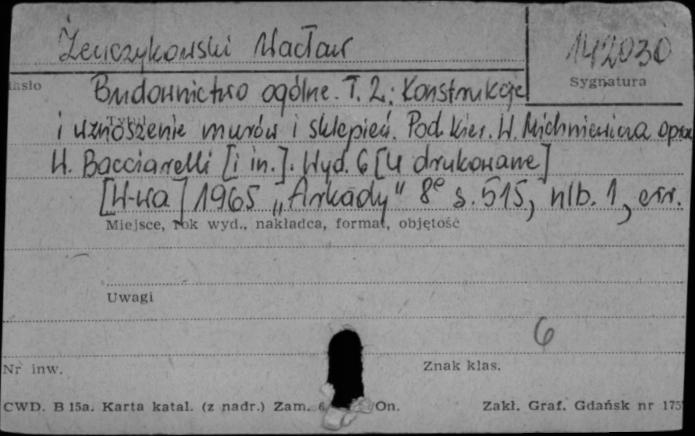 Żenczykowski Wacław 142030
Hasło Sygnatura
Budownictwo ogólne. T. 2: Konstrukcje
Tytuł
i wznoszenie murów i sklepień. Pod. kier. W. Michniewicza oprac.
W. Bacciarelli [i in.]. Wyd. 6 [4 drukowane]
[W-wa] 1965 „Arkady" 8° s. 515, nlb. 1, err.
Miejsce, rok wyd., nakładca, format, objętość
Uwagi
6
Nr inw. Znak klas.
CWD. B 15a. Karta katal. (z nadr.) Zam. On. Zakł. Graf. Gdańsk nr 175